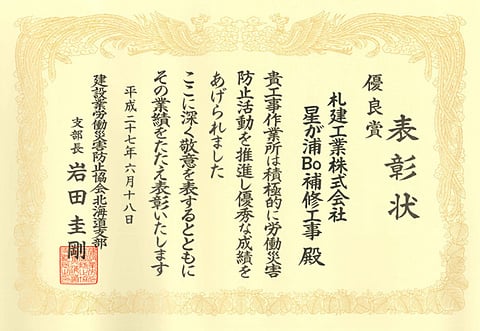 表彰状
優良賞
札建工業株式会社
星が浦Bo補修工事 殿
貴工事作業所は積極的に労働災害
防止活動を推進し優秀な成績を
あげられました
ここに深く敬意を表するとともに
その業績をたたえ表彰いたします
平成二十七年六月十八日
建設業労働災害防止協会北海道支部
支部長 岩田圭剛